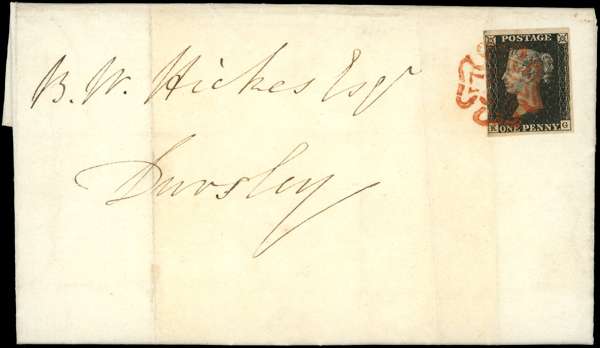 POSTAGE
B. W. Hickes Esqr
K ONE PENNY G
Dursley